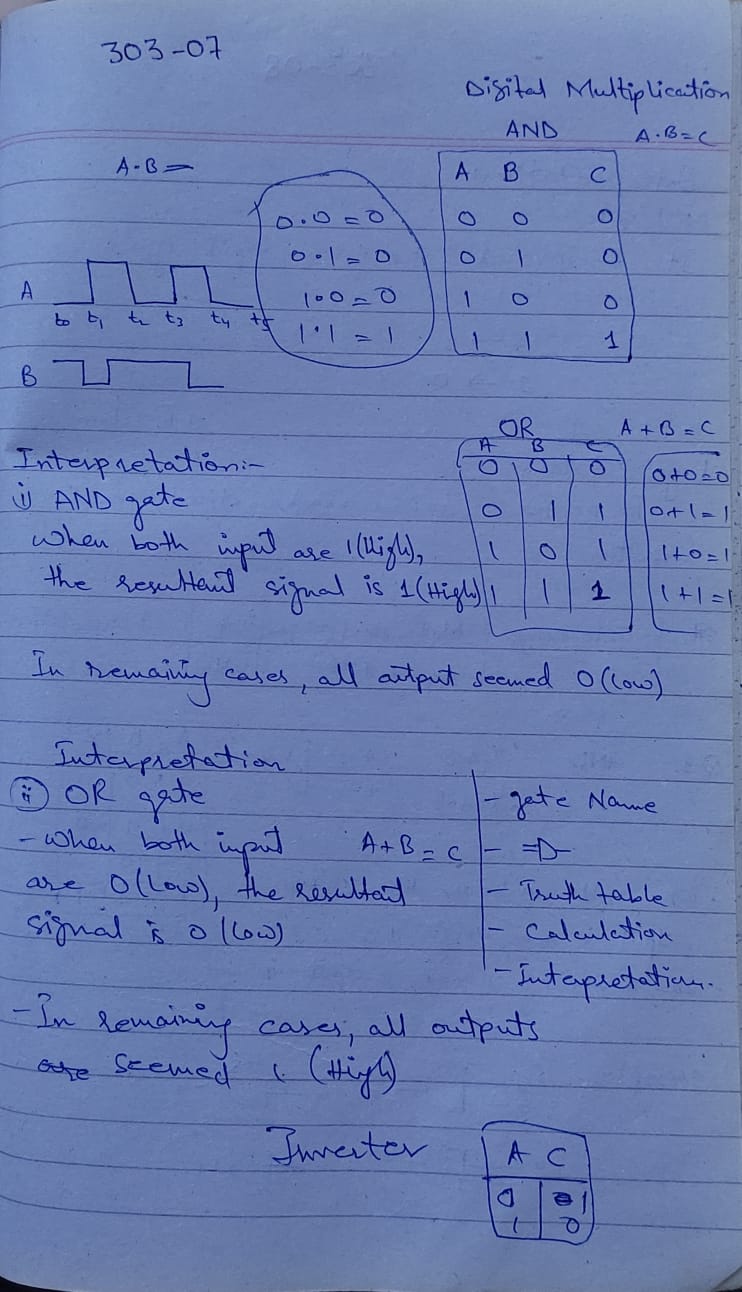 303-07
Digital Multiplication
AND A.B=C
A.B=
A B C
0 0 0
0 1 0
1 0 0
1 1 1
0.0=0
0.1=0
1.0=0
1.1=1
A
t0 t1 t2 t3 t4 t5
B
OR A+B=C
A B C
0 0 0
0 1 1
1 0 1
1 1 1
0+0=0
0+1=1
1+0=1
1+1=1
Interpretation:-
i) AND gate
when both input are 1(High),
the resultant signal is 1(High)
In remaining cases, all output seemed 0(low)
Interpretation
ii) OR gate
- When both input A+B=C
are 0(low), the resultant
signal is 0(low)
- gate Name
-
- Truth table
- Calculation
- Intepretation.
- In remaining cases, all outputs
seemed 1 (High)
Inverter
A C
0 1
1 0